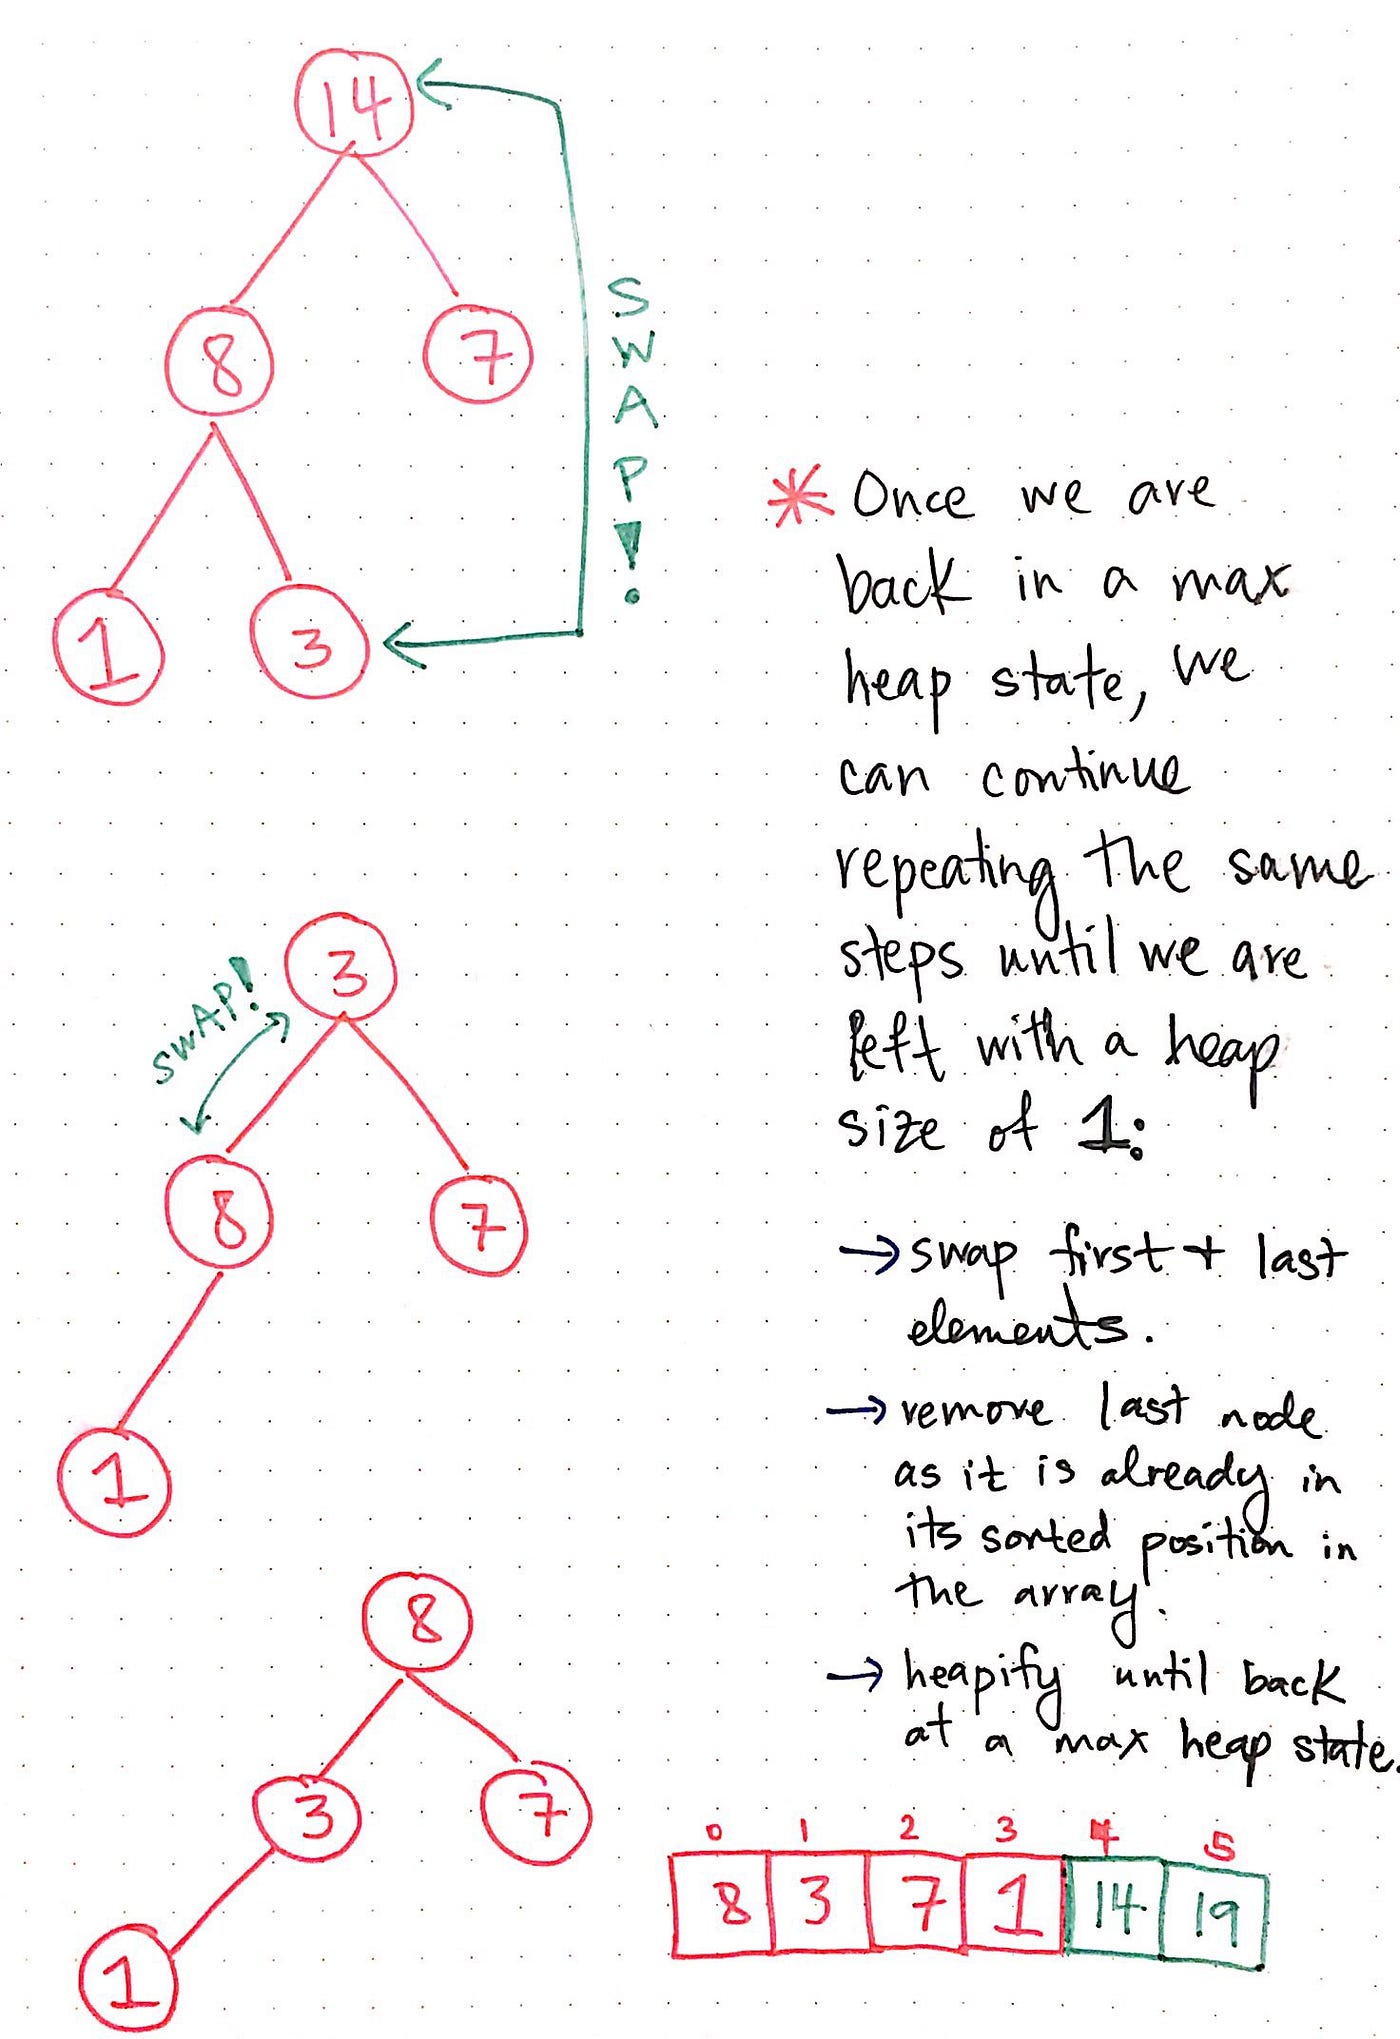 14
8 7
1 3
SWAP!
* Once we are
back in a max
heap state, we
can continue
repeating the same
steps until we are
left with a heap
size of 1:
→ swap first + last
elements.
→ remove last node
as it is already in
its sorted position in
the array.
→ heapify until back
at a max heap state.
3
SWAP!
8 7
1
8
3 7
1
0 1 2 3 4 5
8 3 7 1 14 19